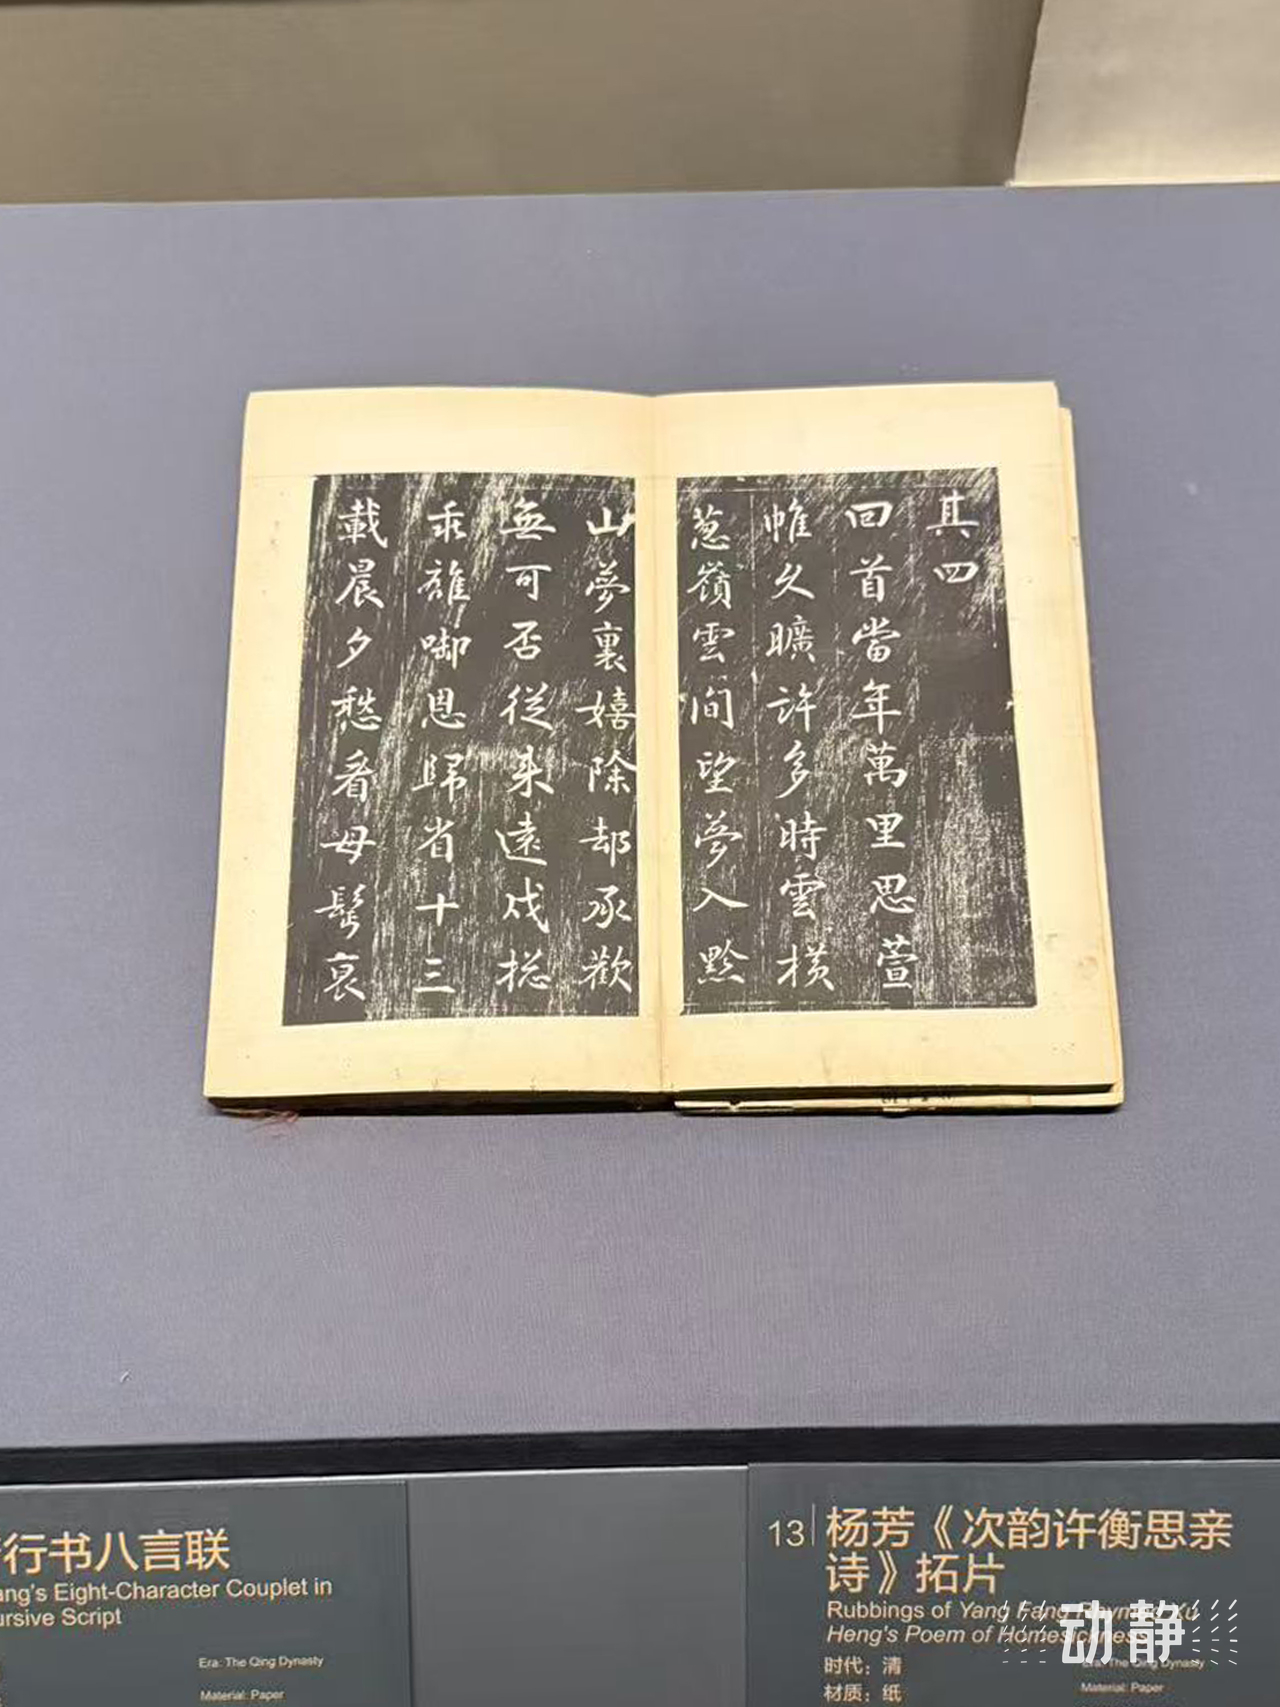 其四
回首當年萬里思萱
帷久曠許多時雲橫
蔥嶺雲间望夢入黔
山夢裏嬉除却承歡
無可否從来遠戍捴
乖離啣恩歸省十三
載晨夕愁看母髩衰
行书八言联
ang's Eight-Character Couplet in
ursive Script
Era: The Qing Dynasty
Material: Paper
13 杨芳《次韵许衡思亲
诗》拓片
Rubbings of Yang Fang Rhymed Xu
Heng's Poem of Homesickness
时代：清
材质：纸
Era: The Qing Dynasty
Material: Paper
动静